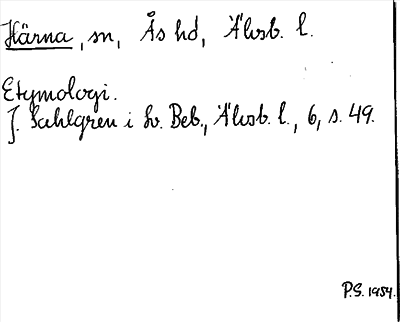 Härna, sn, Ås hd, Älvsb. l.
Etymologi.
J. Sahlgren i Sv. Beb., Älvsb. l., 6, s. 49.
P.S. 1954.